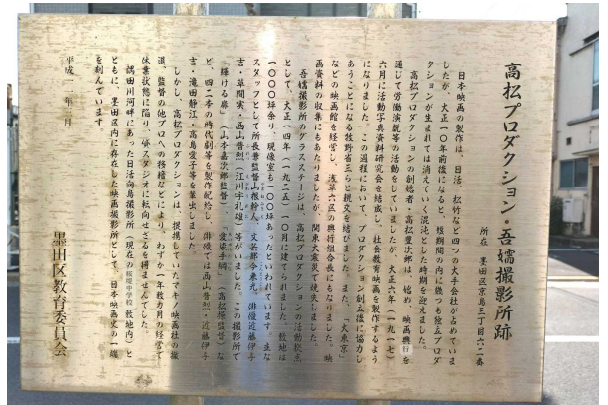 高松プロダクション・吾嬬撮影所跡
所在 墨田区京島三丁目六二番
日本映画の製作は、日活、松竹など四つの大手会社が占めていま
したが、大正一〇年前後になると、短期間の内に幾つも独立プロダ
クションが生まれては消えていく混沌とした時期を迎えました。
高松プロダクションの創始者・高松豊次郎は、始め、映画興行を
通じて労働演説等の活動をしていましたが、大正六年(一九一七)
六月に活動写真資料研究会を結成し、社会教育映画を製作するよう
になりました。この過程において、プロダクション創立後に協力し
あうことになる牧野省三らと親交を結びました。また、「大東京」
などの映画館を経営し、浅草六区の興行組合長にもなりました。映
画資料の収集にもあたりましたが、関東大震災で焼失しました。
吾嬬撮影所のグラスステージは、高松プロダクションの活動拠点
として、大正一四年(一九二五)一〇月に建てられました。敷地は
一〇〇〇坪余り、現像室も一〇〇坪あったといわれています。主な
スタッフとして所長兼監督山根幹人、文芸部今東光、俳優近藤伊予
吉・草間実・西山普烈・江川宇礼雄等がいました。この撮影所で
「輝ける扉」(山本嘉次郎監督)、「愛怨手綱」(高松操監督)な
ど、四二本の時代劇等を製作配給し、俳優では西山普烈・近藤伊予
吉・滝田静江・高島愛子等を輩出しました。
しかし、高松プロダクションは、提携していたマキノ映画社の撤
退、監督の他プロへの移籍などにより、わずか一年数カ月の経営で
休業状態に陥り、貸スタジオに転向せざるを得ませんでした。
隅田川河畔にあった日活向島撮影所(現在の桜堤中学校敷地内)と
ともに、墨田区内に存在した映画撮影所として、日本映画史の一端
を刻んでいます。
平成 年 月
墨田区教育委員会